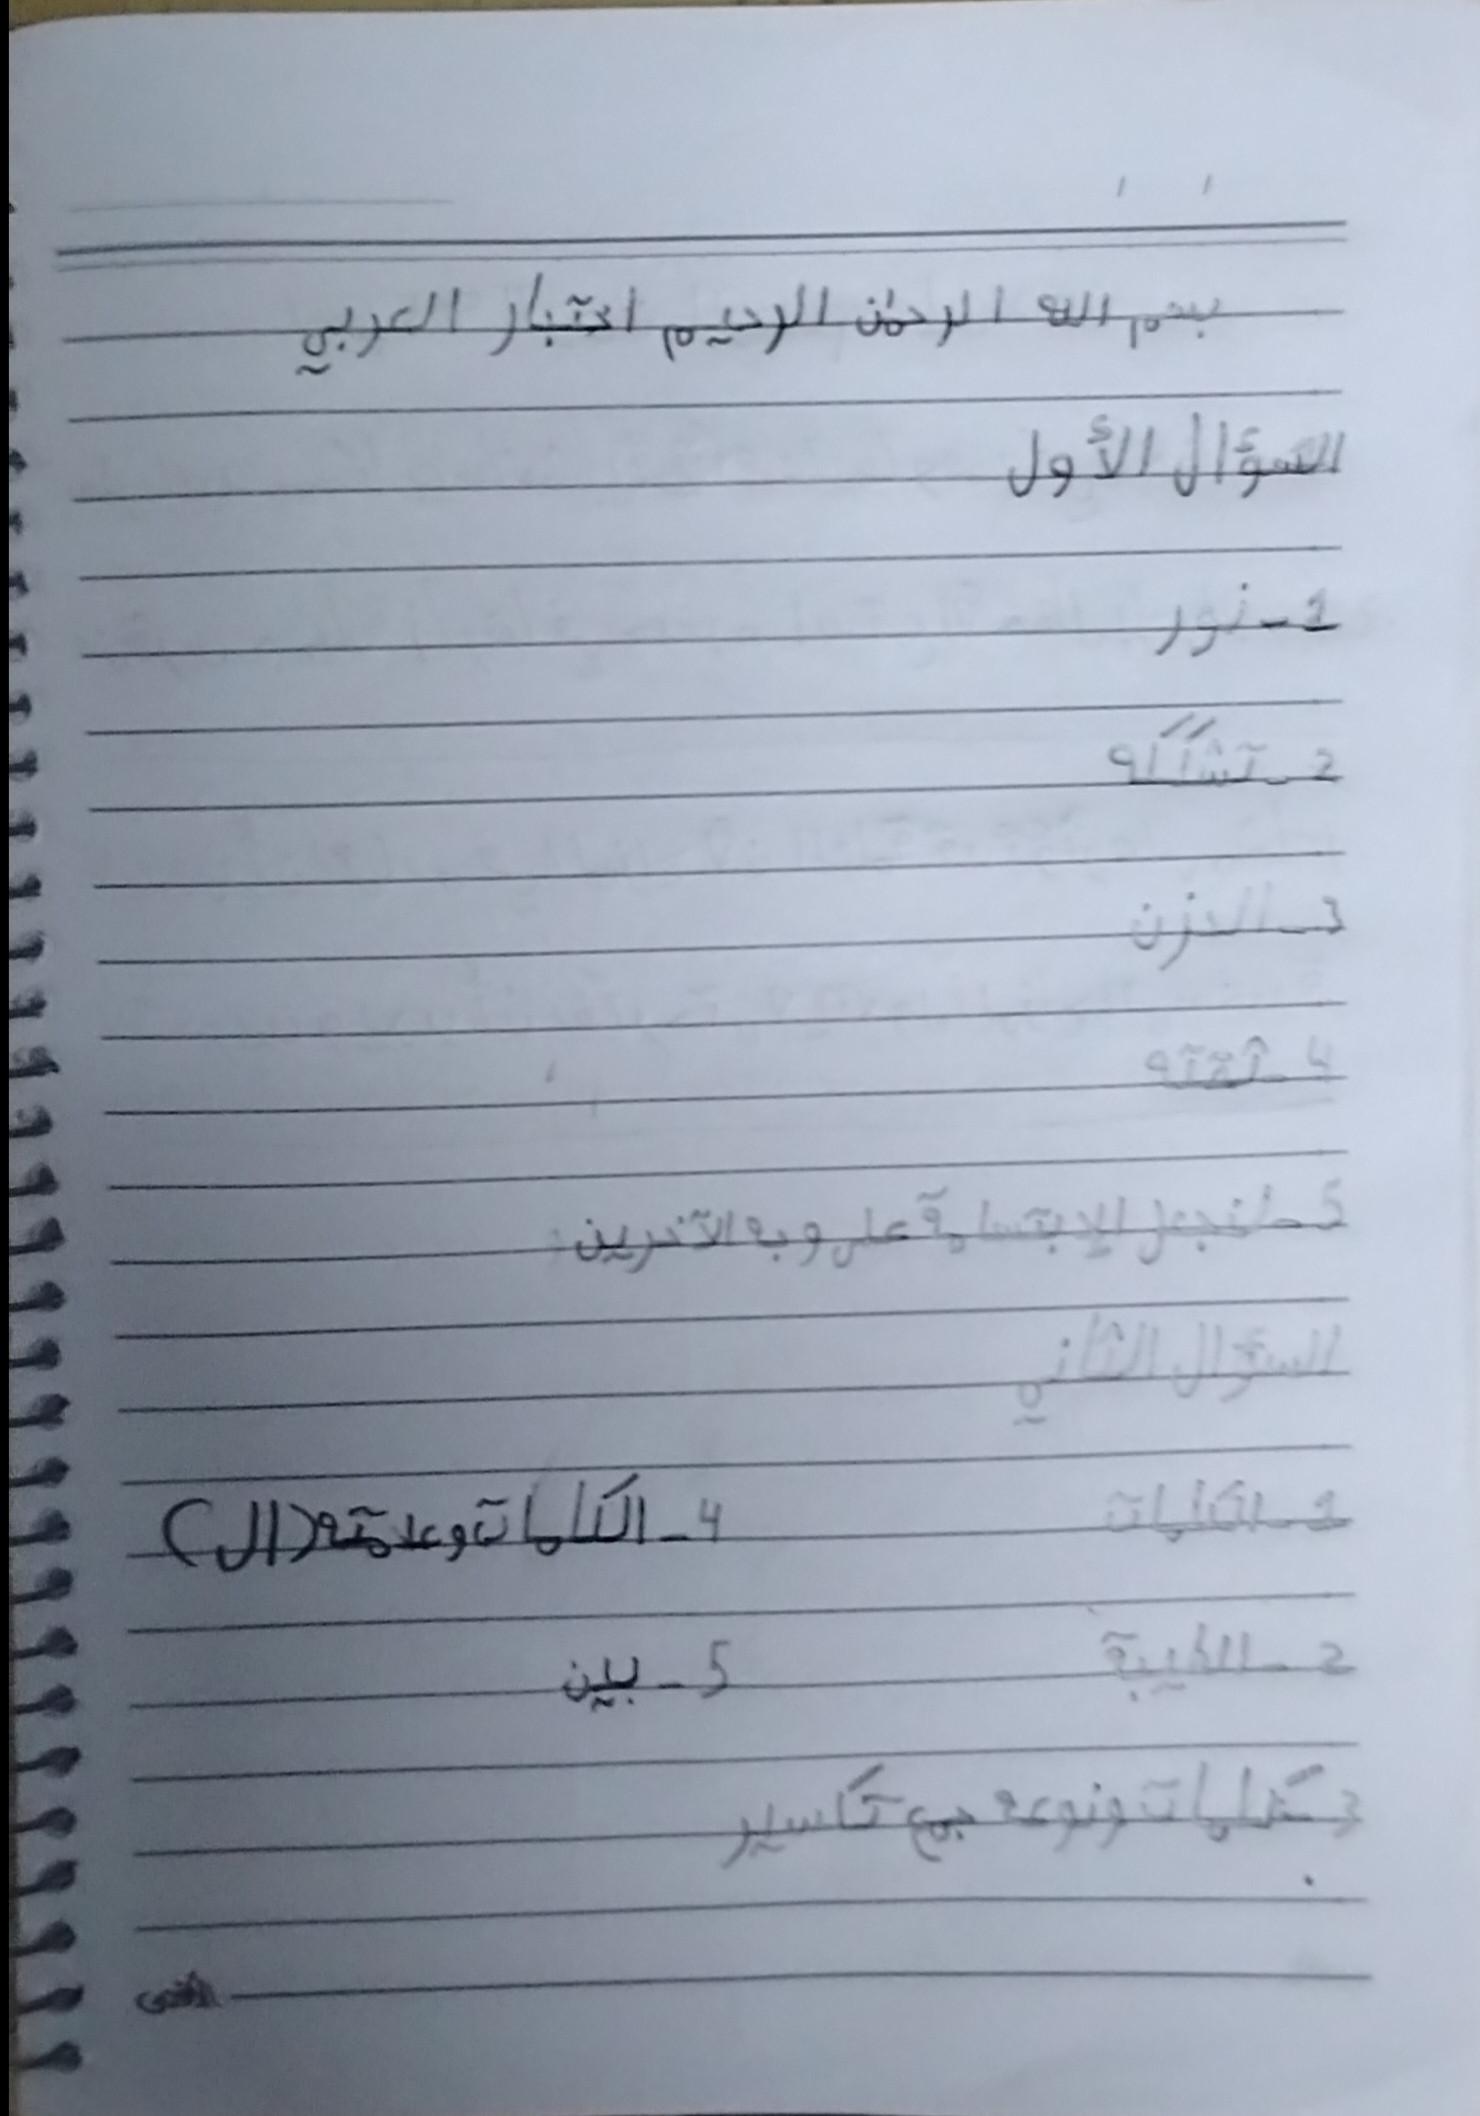 بسم الله الرحمٰن الرحيم اختبار العربي
السؤال الأول
1- نور
2- تشاكله
3- الحزن
4- تحته
5- لنجعل الإبتسامة على وجه الآخرين
السؤال الثاني
1- الكلمات 4- الكلمات وعلامته (ال)
2- الطيبة 5- بين
3- كلمات ونوعه جمع تكاسير